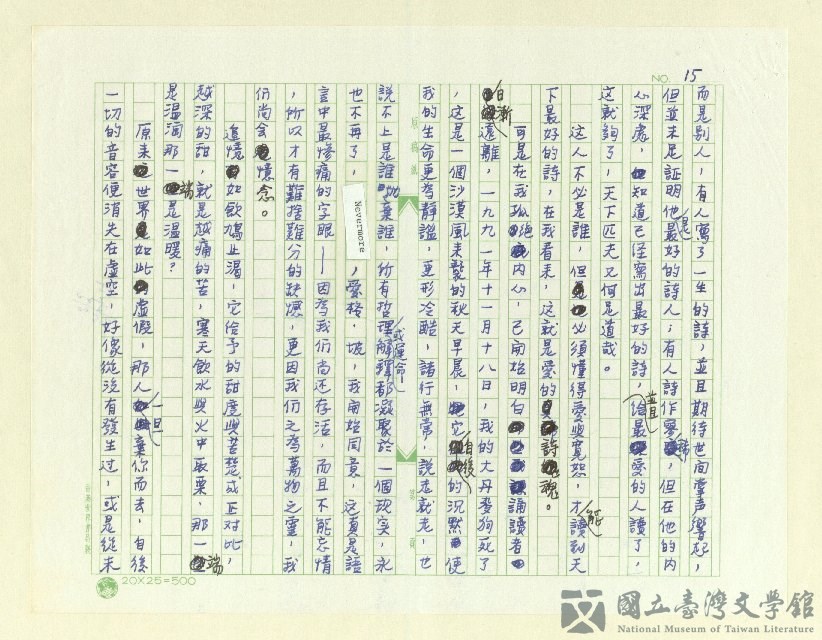 NO. 15
而是別人，有人寫了一生的詩，並且期待世間掌声響起，
但並未足証明他是最好的詩人；有人詩作寥稀，但在他的內
心深處，知道已經寫出最好的詩，並且給最愛的人讀了，
這就夠了，天下匹夫又何足道哉。
這人不必是誰，但必須懂得愛與寬恕，才能讀到天
下最好的詩，在我看来，這就是愛的詩魂。
可是在我孤絕內心，已開始明白誦讀者
日漸遠離，一九九一年十一月十八日，我的大丹麥狗死了
，這是一個沙漠風来襲的秋天早晨，它自後的沉默便
我的生命更為靜謐，更形冷酷，諸行無常，說走就走，也
說不上是誰拋棄誰，所有哲理解釋或運命都凝聚於一個現实，永
也不再了，Nevermore，愛倫，坡，我開始同意，這真是語
言中最慘痛的字眼——因為我们尚还存活，而且不能忘情
，所以才有難捨難分的缺憾，更因我们之為萬物之靈，我
们尚会憶念。
追憶如飲鴆止渴，它給予的甜度與苦楚成正对比，
越深的甜，就是越痛的苦，寒天飲水與火中取栗，那一端
是溫涸那一端是溫暖？
原来世界如此虛假，那人一旦棄你而去，自後
一切的音容便消失在虛空，好像從沒有發生过，或是從未
20X25=500
國立臺灣文學館
National Museum of Taiwan Literature